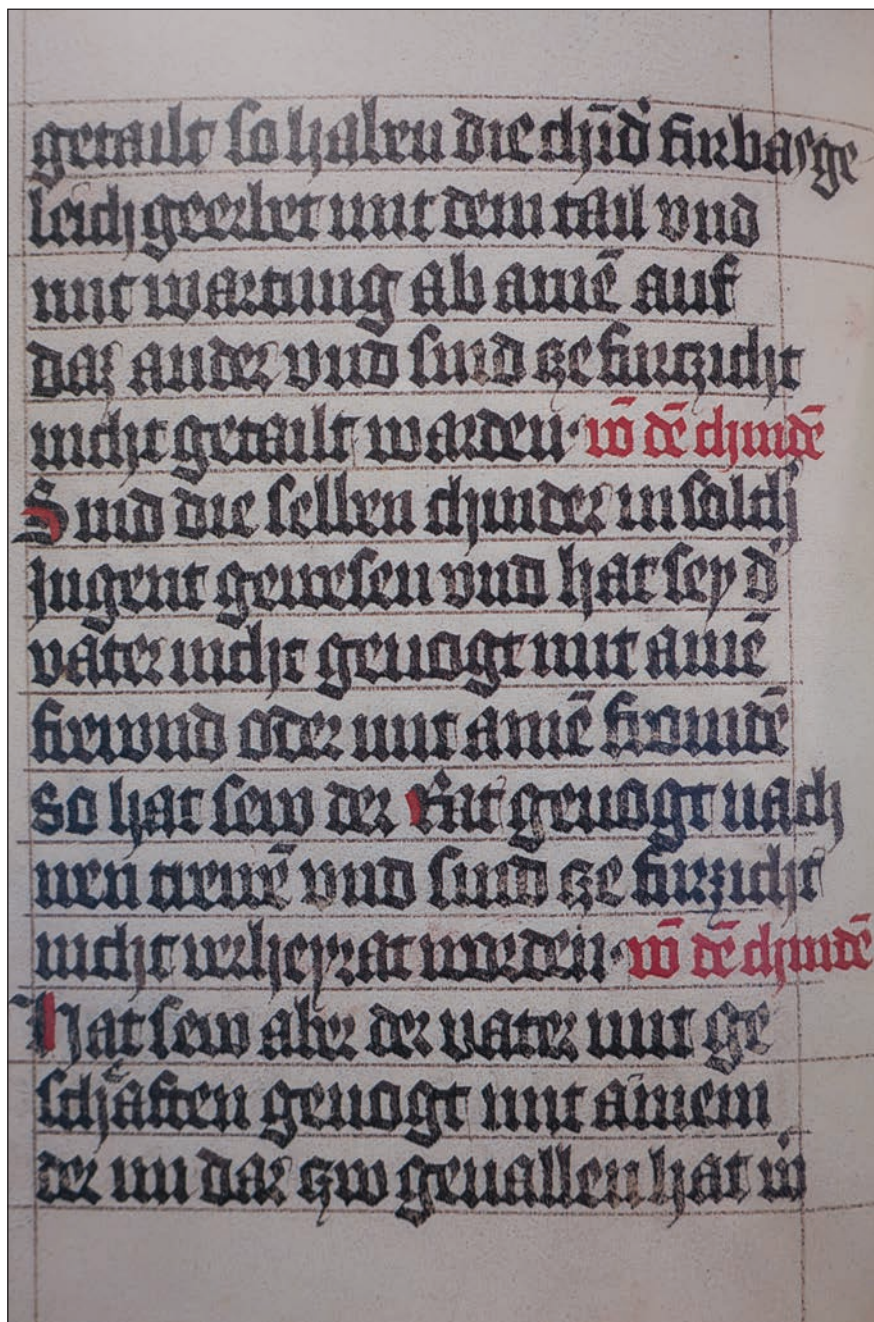 getailt so haben die chīd' furbas ge
leich geerbet mit dem tail vnd
mit wartung ab ainē auf
daz ander vnd sind cze furczicht
nicht getailt warden · vō dē chindē
Sind die selben chinder in solch
Jugent gewesen vnd hat sey d'
vater nicht geuogt mit ainē
frewnd oder mit ainē fromdē
so hat sew der Rat geuogt nach
iren trewē vnd sind cze furzicht
nicht verheyrat worden · vō dē chindē
Hat sew aber der vater mit ge
schäften geuogt mit ainem
der im dar czw geuallen hat vn̄